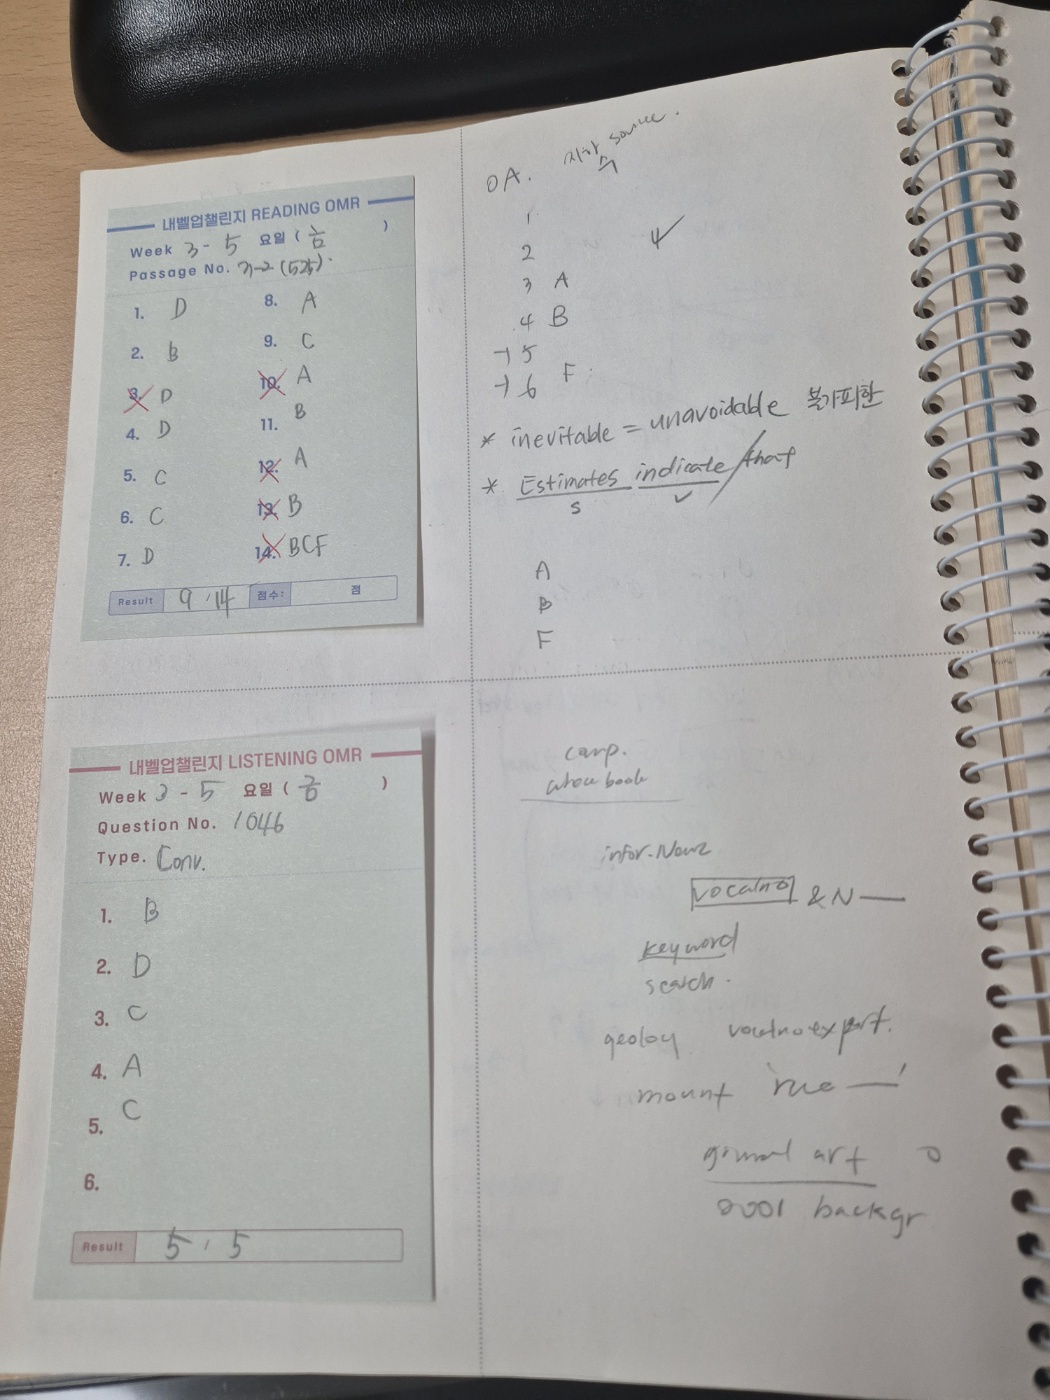 내벨업챌린지 READING OMR
Week 3 - 5 요일 ( 금 )
Passage No. 31-2 (525).
1. D
2. B
3. D
4. D
5. C
6. C
7. D
8. A
9. C
10. A
11. B
12. A
13. B
14. BCF
Result 9 / 14 점수: 점
OA. 지하 source.
수
1
2
3 A
4 B
→ 5
→ 6 F.
* inevitable = unavoidable 불가피한
* Estimates indicate / that
S V
A
B
F
내벨업챌린지 LISTENING OMR
Week 3 - 5 요일 ( 금 )
Question No. 1046
Type. Conv.
1. B
2. D
3. C
4. A
5. C
6.
Result 5 / 5
carp.
infor.
vocalno & N —
keyword
search.
geoloy vocalno expert.
mount
art
backgr